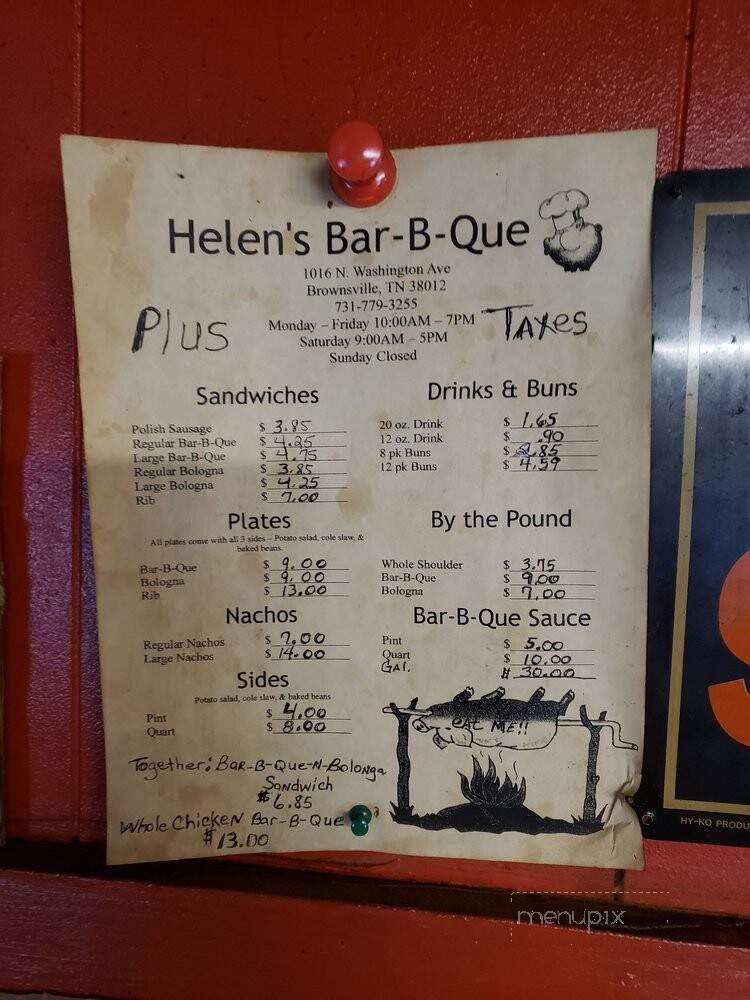 Helen's Bar-B-Que
1016 N. Washington Ave
Brownsville, TN 38012
731-779-3255
Plus
Monday – Friday 10:00AM – 7PM
Taxes
Saturday 9:00AM – 5PM
Sunday Closed
Sandwiches
Polish Sausage $ 3.85
Regular Bar-B-Que $ 4.25
Large Bar-B-Que $ 4.75
Regular Bologna $ 3.85
Large Bologna $ 4.25
Rib $ 7.00
Plates
All plates come with all 3 sides – Potato salad, cole slaw, &
baked beans.
Bar-B-Que $ 9.00
Bologna $ 9.00
Rib $ 13.00
Nachos
Regular Nachos $ 7.00
Large Nachos $ 14.00
Sides
Potato salad, cole slaw, & baked beans
Pint $ 4.00
Quart $ 8.00
Together: Bar-B-Que-N-Bolonga
Sandwich
$6.85
Whole Chicken Bar-B-Que
$13.00
Drinks & Buns
20 oz. Drink $ 1.65
12 oz. Drink $ .90
8 pk Buns $ .85
12 pk Buns $ 4.59
By the Pound
Whole Shoulder $ 3.75
Bar-B-Que $ 9.00
Bologna $ 7.00
Bar-B-Que Sauce
Pint $ 5.00
Quart $ 10.00
GAl. $ 30.00
eat ME!!
HY-KO PRODU
menupix